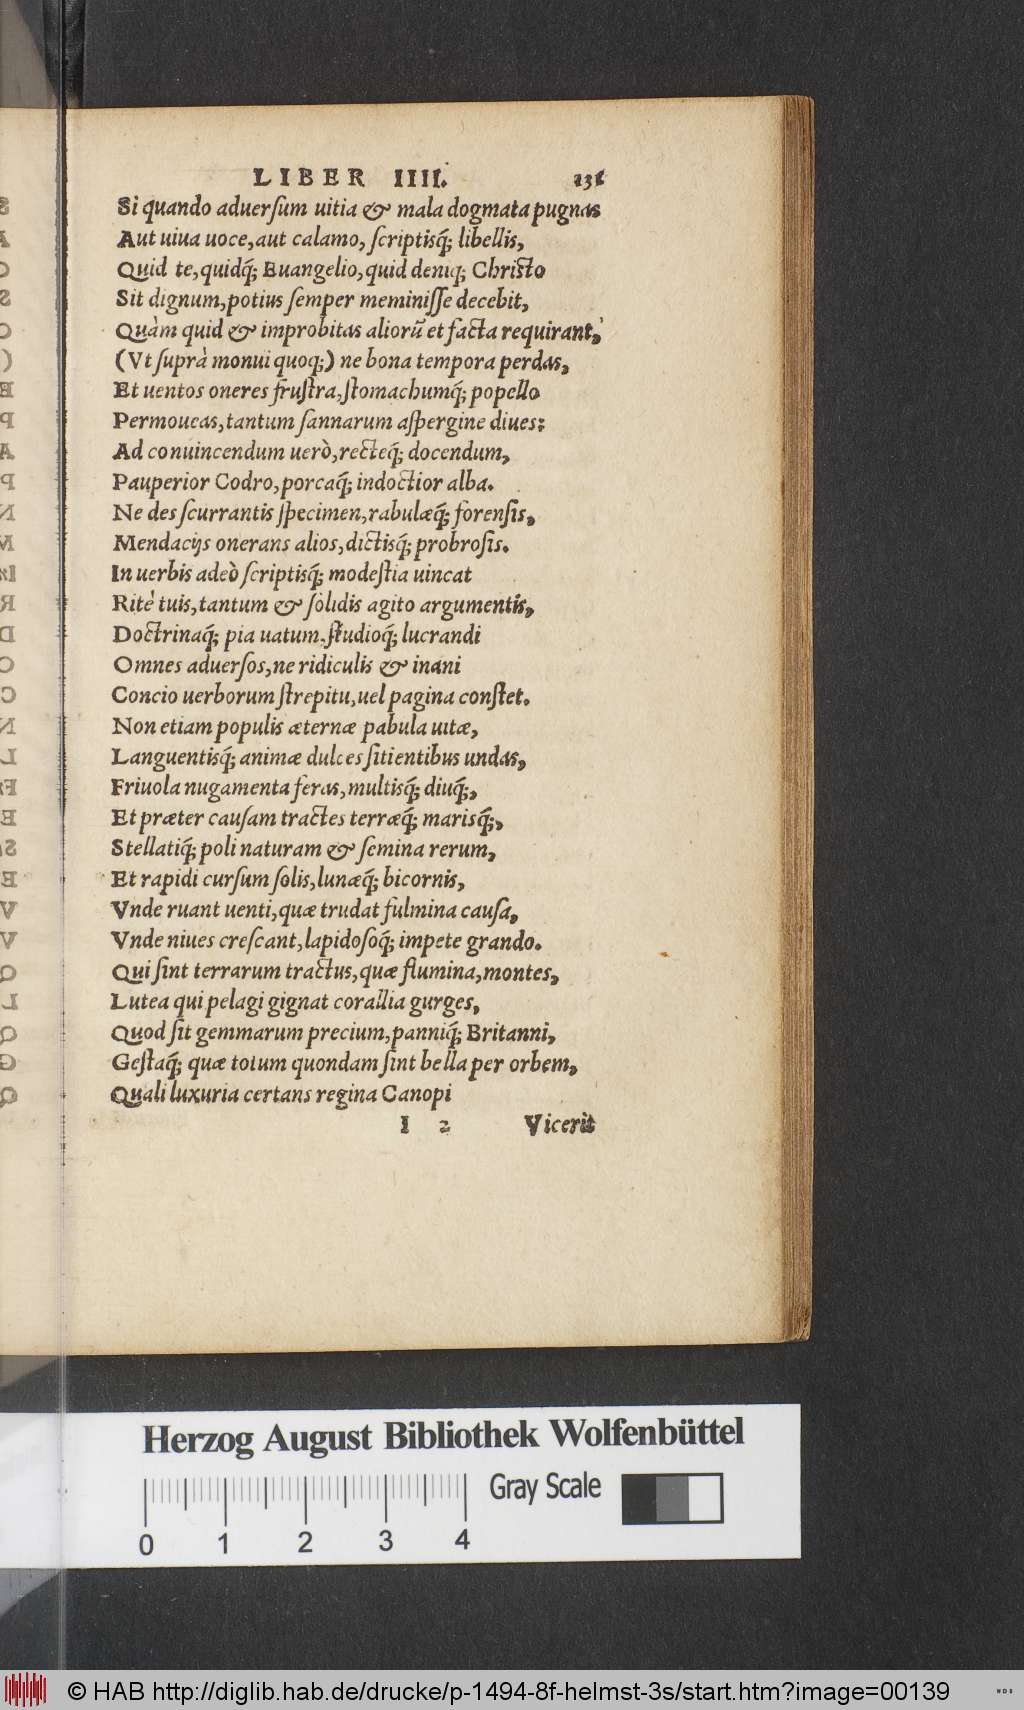 LIBER IIII. 131
Si quando aduerſum uitia & mala dogmata pugnas
Aut uiua uoce, aut calamo, ſcriptisq́; libellis,
Quid te, quidq́; Euangelio, quid deniq; Chriſto
Sit dignum, potius ſemper meminiſſe decebit,
Quàm quid & improbitas aliorũ et facta requirant,
(Vt ſuprà monui quoq;) ne bona tempora perdas,
Et uentos oneres fruſtra, ſtomachumq́; popello
Permoueas, tantum ſannarum aſpergine diues:
Ad conuincendum uerò, recteq́; docendum,
Pauperior Codro, porcaq́; indoctior alba.
Ne des ſcurrantis ſpecimen, rabulæq́; forenſis,
Mendacijs onerans alios, dictisq́; probroſis.
In uerbis adeò ſcriptisq́; modeſtia uincat
Ritè tuis, tantum & ſolidis agito argumentis,
Doctrinaq́; pia uatum. ſtudioq́; lucrandi
Omnes aduerſos, ne ridiculis & inani
Concio uerborum ſtrepitu, uel pagina conſtet.
Non etiam populis æternæ pabula uitæ,
Languentisq́; animæ dulces ſitientibus undas,
Friuola nugamenta feras, multisq́; diuq́;,
Et præter cauſam tractes terræq́; marisq́;,
Stellatiq́; poli naturam & ſemina rerum,
Et rapidi curſum ſolis, lunæq́; bicornis,
Vnde ruant uenti, quæ trudat fulmina cauſa,
Vnde niues creſcant, lapidoſoq́; impete grando.
Qui ſint terrarum tractus, quæ flumina, montes,
Lutea qui pelagi gignat corallia gurges,
Quod ſit gemmarum precium, panniq́; Britanni,
Geſtaq́; quæ totum quondam ſint bella per orbem,
Quali luxuria certans regina Canopi
I 2 Vicerit
Herzog August Bibliothek Wolfenbüttel
Gray Scale
0 1 2 3 4
© HAB http://diglib.hab.de/drucke/p-1494-8f-helmst-3s/start.htm?image=00139